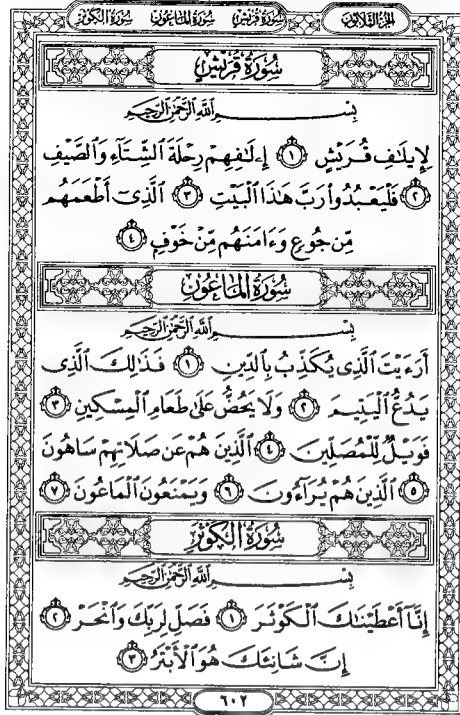 الجزء الثلاثون سورة قريش سورة الماعون سورة الكوثر
سُورَةُ قُرَيْشٍ
بِسْمِ اللَّهِ الرَّحْمَٰنِ الرَّحِيمِ
لِإِيلَٰفِ قُرَيْشٍ ١ إِۦلَٰفِهِمْ رِحْلَةَ ٱلشِّتَآءِ وَٱلصَّيْفِ
٢ فَلْيَعْبُدُوا۟ رَبَّ هَٰذَا ٱلْبَيْتِ ٣ ٱلَّذِىٓ أَطْعَمَهُم
مِّن جُوعٍ وَءَامَنَهُم مِّنْ خَوْفٍ ٤
سُورَةُ المَاعُونِ
بِسْمِ اللَّهِ الرَّحْمَٰنِ الرَّحِيمِ
أَرَءَيْتَ ٱلَّذِى يُكَذِّبُ بِٱلدِّينِ ١ فَذَٰلِكَ ٱلَّذِى
يَدُعُّ ٱلْيَتِيمَ ٢ وَلَا يَحُضُّ عَلَىٰ طَعَامِ ٱلْمِسْكِينِ ٣
فَوَيْلٌ لِّلْمُصَلِّينَ ٤ ٱلَّذِينَ هُمْ عَن صَلَاتِهِمْ سَاهُونَ
٥ ٱلَّذِينَ هُمْ يُرَآءُونَ ٦ وَيَمْنَعُونَ ٱلْمَاعُونَ ٧
سُورَةُ الكَوْثَرِ
بِسْمِ اللَّهِ الرَّحْمَٰنِ الرَّحِيمِ
إِنَّآ أَعْطَيْنَٰكَ ٱلْكَوْثَرَ ١ فَصَلِّ لِرَبِّكَ وَٱنْحَرْ ٢
إِنَّ شَانِئَكَ هُوَ ٱلْأَبْتَرُ ٣
٦٠٢